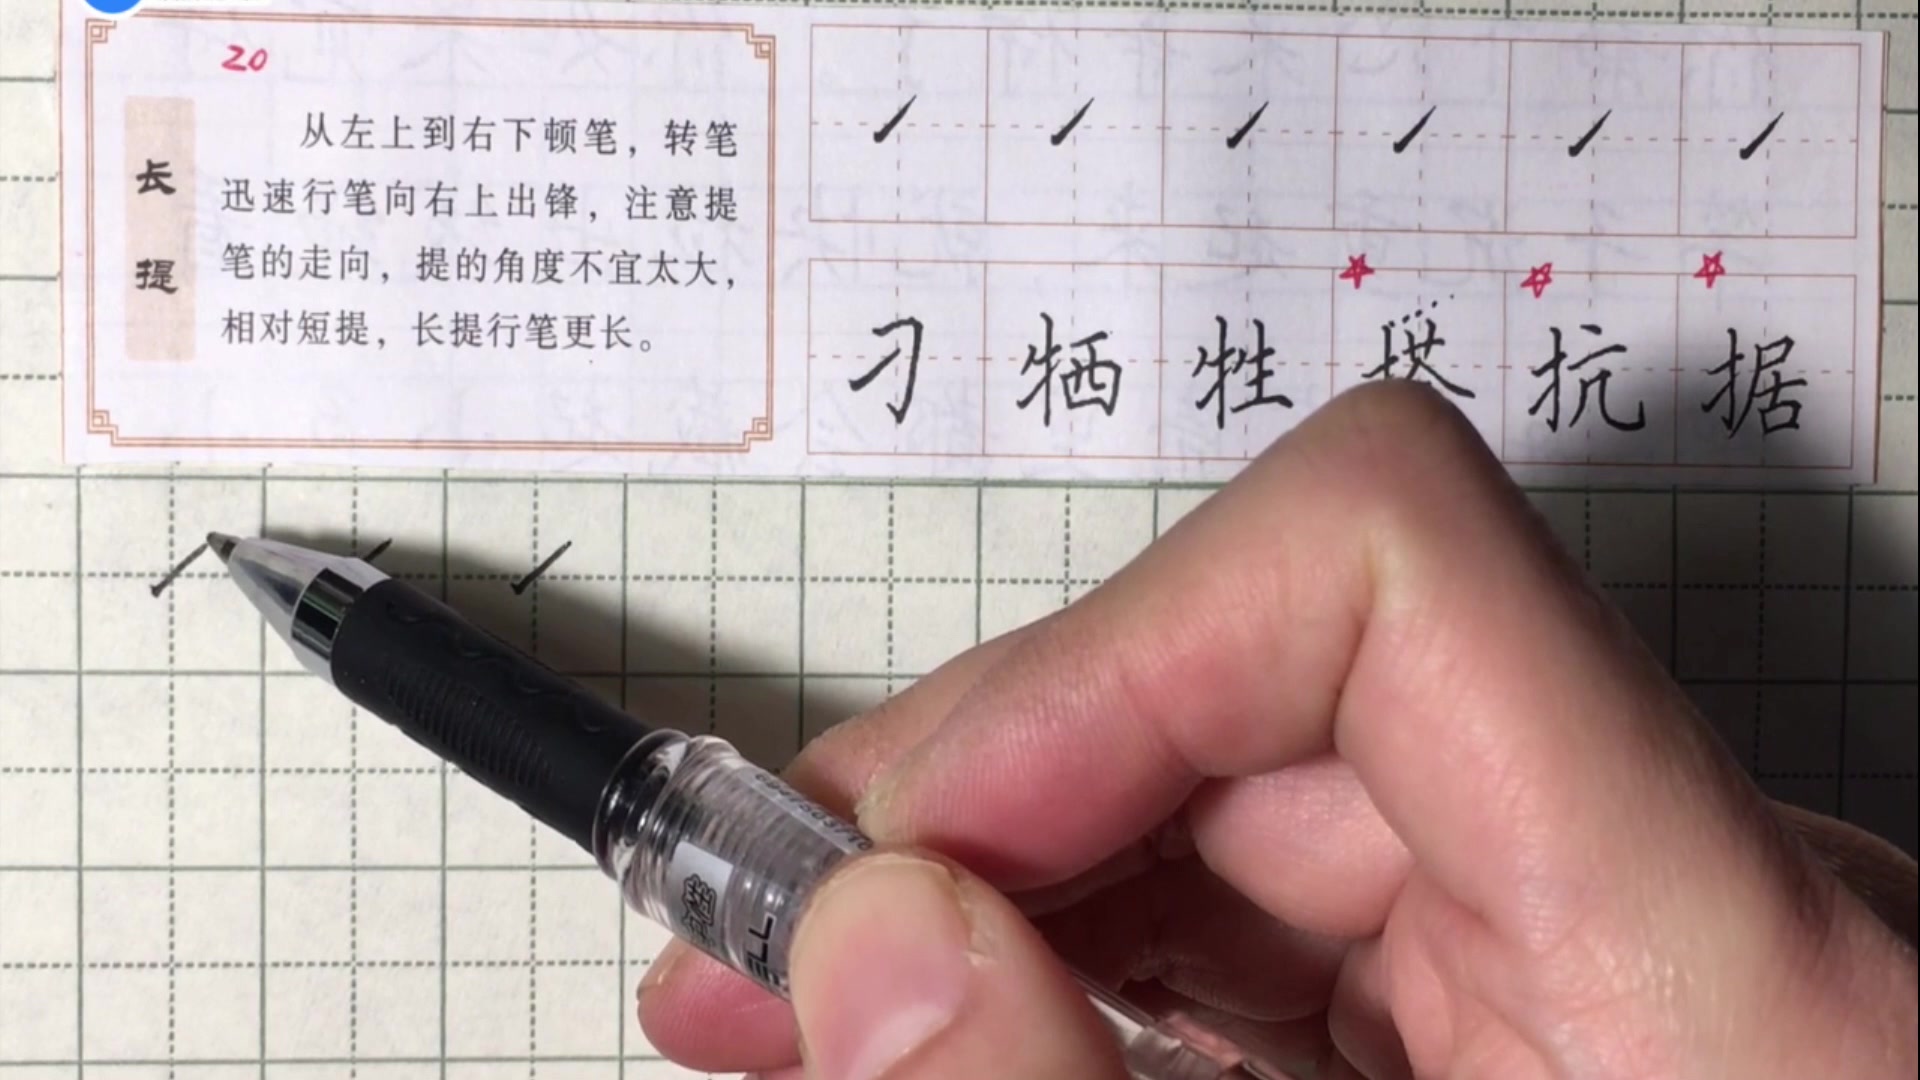 20
长提
从左上到右下顿笔，转笔
迅速行笔向右上出锋，注意提
笔的走向，提的角度不宜太大，
相对短提，长提行笔更长。
刁 牺 牲 搭 抗 据